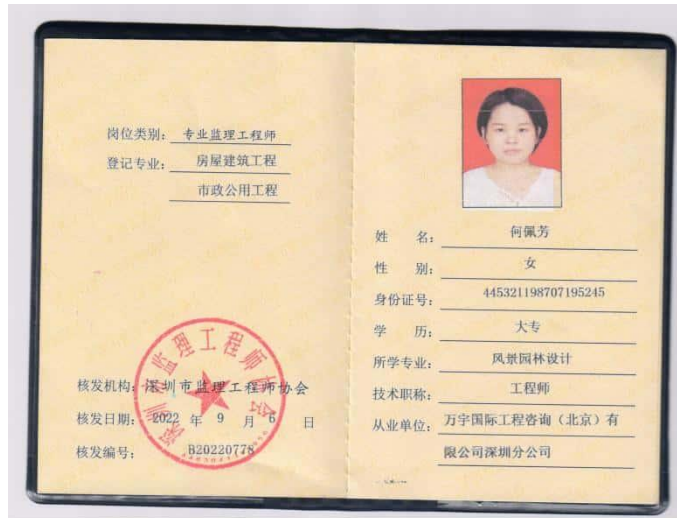 岗位类别：专业监理工程师
登记专业：房屋建筑工程
市政公用工程
深圳市监理工程师协会
核发机构：深圳市监理工程师协会
核发日期：2022 年 9 月 6 日
核发编号：B20220778
姓 名：何佩芳
性 别：女
身份证号：445321198707195245
学 历：大专
所学专业：风景园林设计
技术职称：工程师
从业单位：万宇国际工程咨询（北京）有
限公司深圳分公司